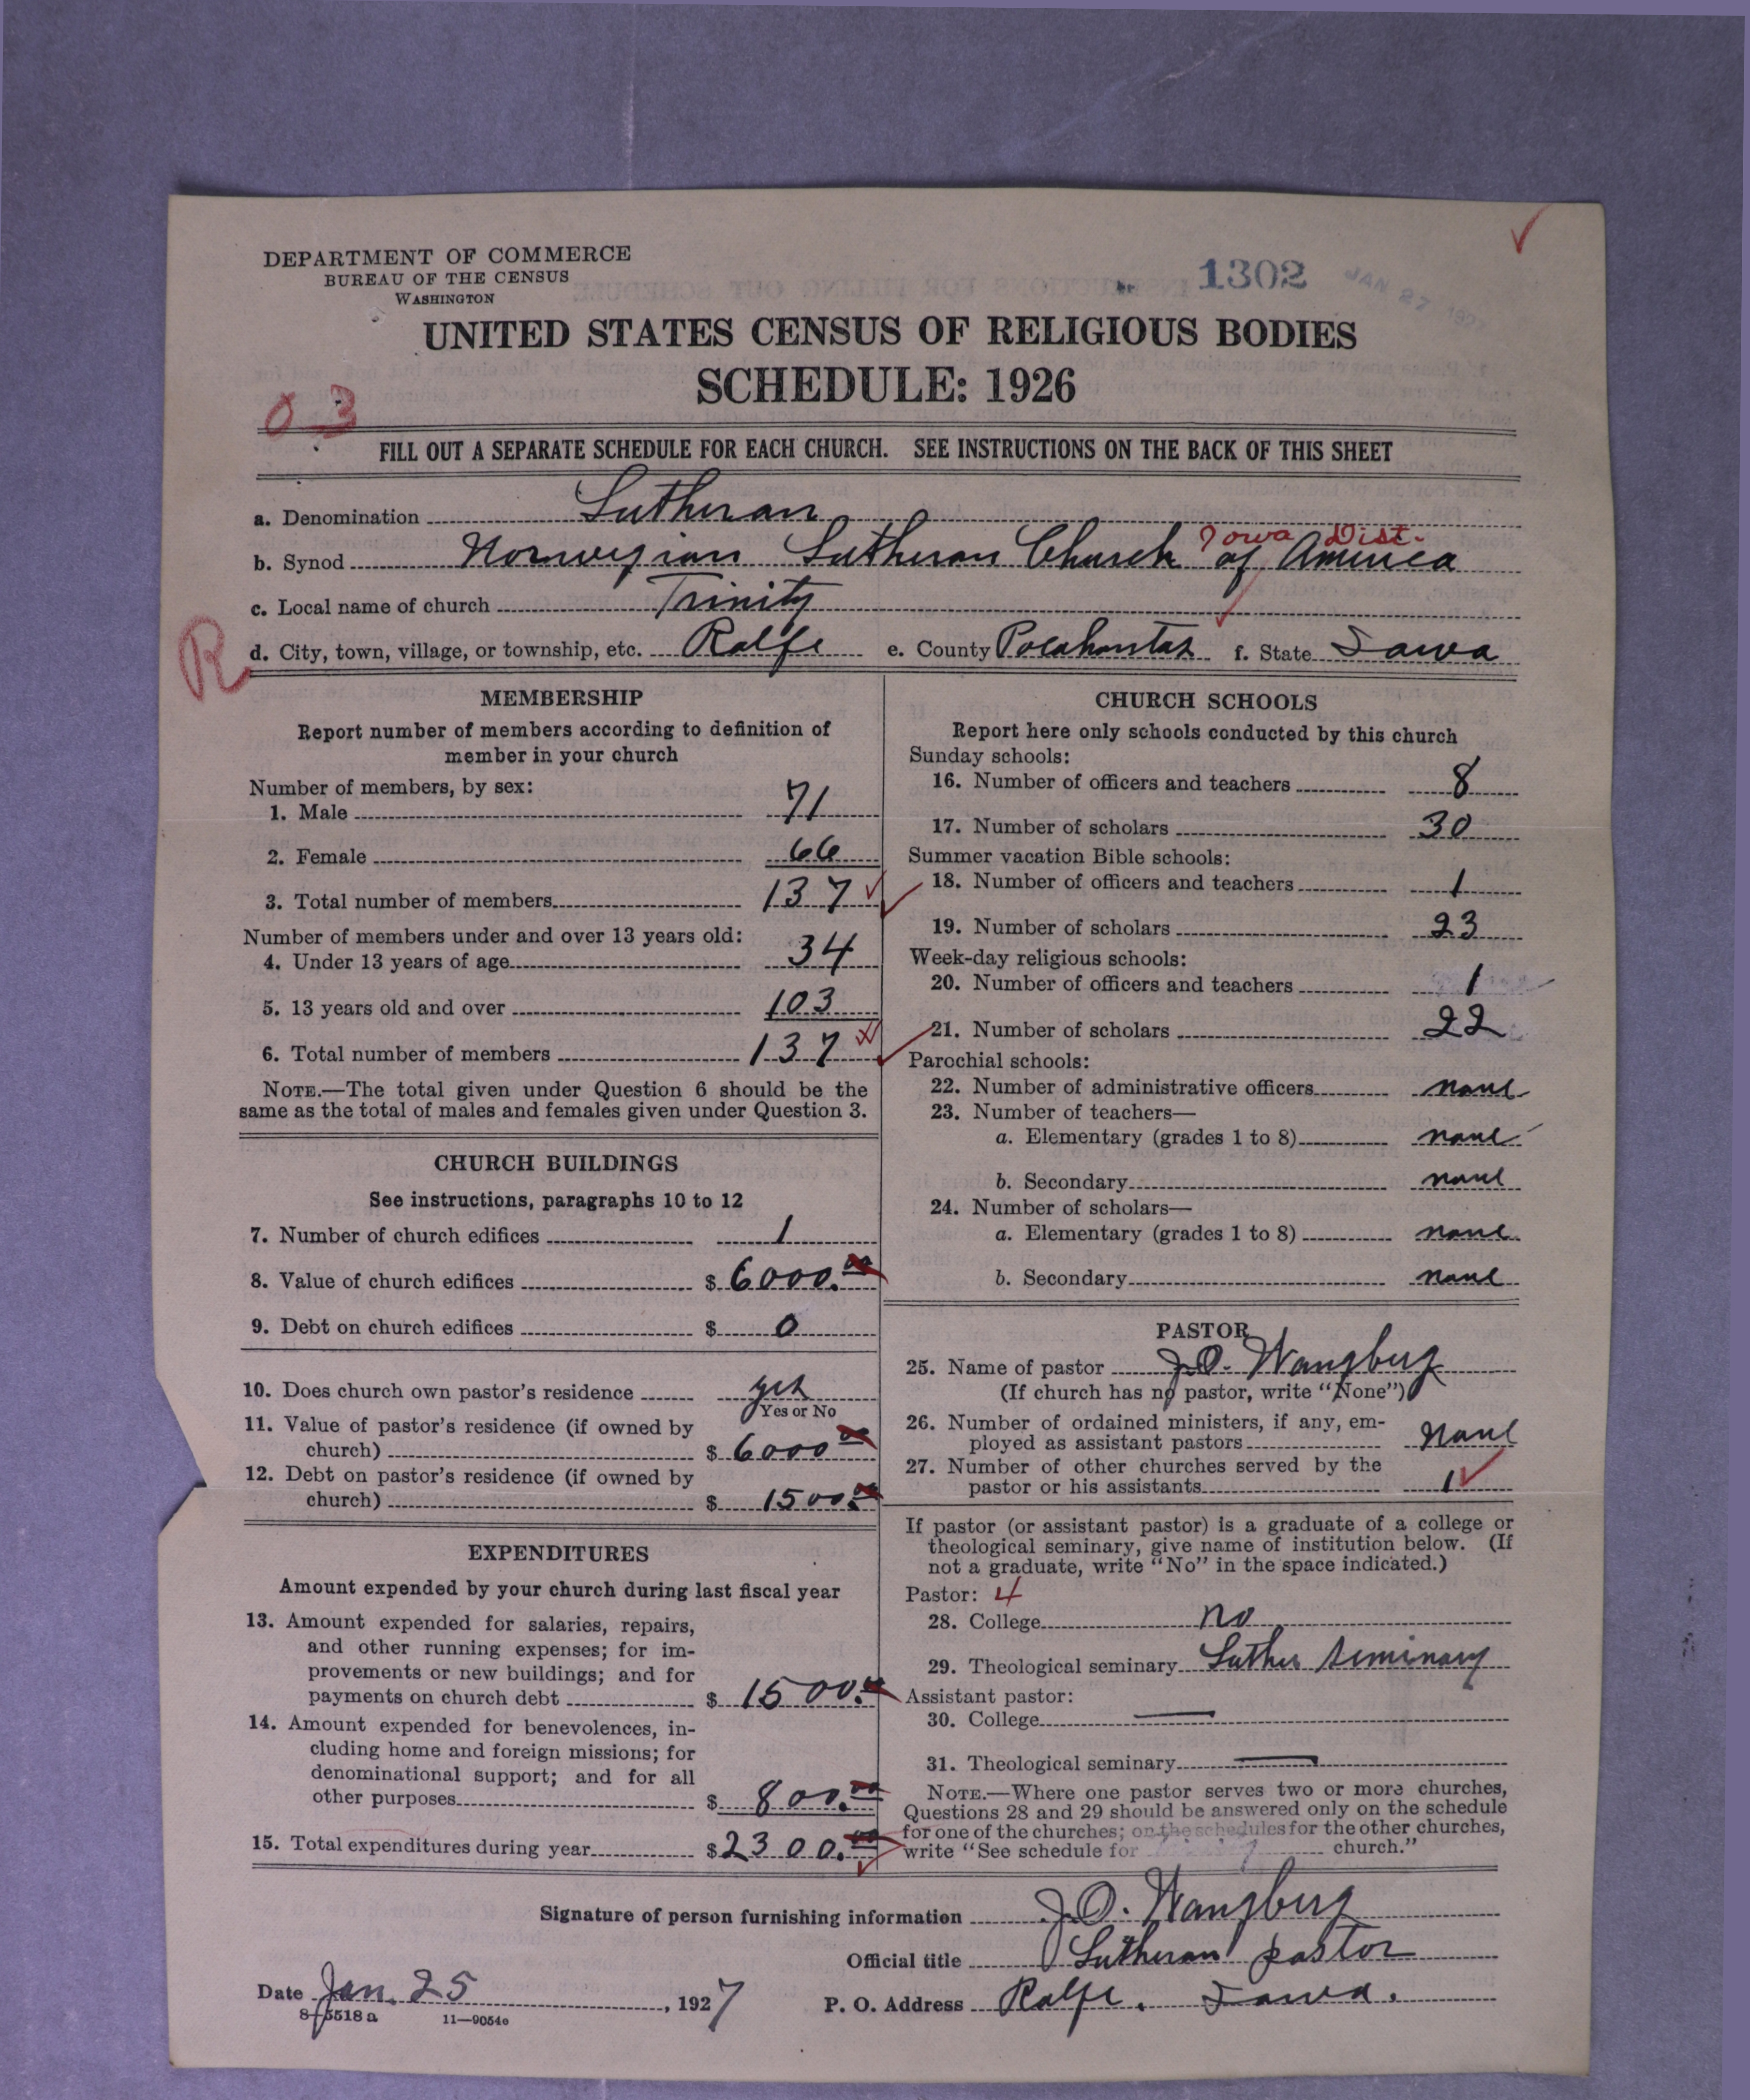 DEPARTMENT OF COMMERCE
BUREAU OF THE CENSUS
WASHINGTON
1302
JAN 27 1927
UNITED STATES CENSUS OF RELIGIOUS BODIES
SCHEDULE: 1926
03
FILL OUT A SEPARATE SCHEDULE FOR EACH CHURCH. SEE INSTRUCTIONS ON THE BACK OF THIS SHEET
a. Denomination Lutheran
Iowa Dist.
b. Synod Norwegian Lutheran Church of America
c. Local name of church Trinity
R
d. City, town, village, or township, etc. Rolfe e. County Pocahontas f. State Iowa
MEMBERSHIP
Report number of members according to definition of
member in your church
Number of members, by sex:
1. Male 71
2. Female 66
3. Total number of members 137
Number of members under and over 13 years old:
4. Under 13 years of age 34
5. 13 years old and over 103
6. Total number of members 137
NOTE.—The total given under Question 6 should be the
same as the total of males and females given under Question 3.
CHURCH BUILDINGS
See instructions, paragraphs 10 to 12
7. Number of church edifices 1
8. Value of church edifices $ 6000.00
9. Debt on church edifices $ 0
10. Does church own pastor's residence yes
Yes or No
11. Value of pastor's residence (if owned by
church) $ 6000 00
12. Debt on pastor's residence (if owned by
church) $ 1500.00
EXPENDITURES
Amount expended by your church during last fiscal year
13. Amount expended for salaries, repairs,
and other running expenses; for im-
provements or new buildings; and for
payments on church debt $ 1500.00
14. Amount expended for benevolences, in-
cluding home and foreign missions; for
denominational support; and for all
other purposes $ 800.00
15. Total expenditures during year $ 2300.00
CHURCH SCHOOLS
Report here only schools conducted by this church
Sunday schools:
16. Number of officers and teachers 8
17. Number of scholars 30
Summer vacation Bible schools:
18. Number of officers and teachers 1
19. Number of scholars 23
Week-day religious schools:
20. Number of officers and teachers 1
21. Number of scholars 22
Parochial schools:
22. Number of administrative officers none
23. Number of teachers—
a. Elementary (grades 1 to 8) none
b. Secondary none
24. Number of scholars—
a. Elementary (grades 1 to 8) none
b. Secondary none
PASTOR
25. Name of pastor J.O. Wangberg
(If church has no pastor, write "None")
26. Number of ordained ministers, if any, em-
ployed as assistant pastors None
27. Number of other churches served by the
pastor or his assistants 1
If pastor (or assistant pastor) is a graduate of a college or
theological seminary, give name of institution below. (If
not a graduate, write "No" in the space indicated.)
Pastor: 4
28. College no
29. Theological seminary Luther Seminary
Assistant pastor:
30. College
31. Theological seminary
NOTE.—Where one pastor serves two or more churches,
Questions 28 and 29 should be answered only on the schedule
for one of the churches; on the schedules for the other churches,
write "See schedule for church."
Signature of person furnishing information J.O. Wangberg
Official title Lutheran pastor
Date Jan. 25, 1927 P. O. Address Rolfe, Iowa.
8-5518 a 11-9054e